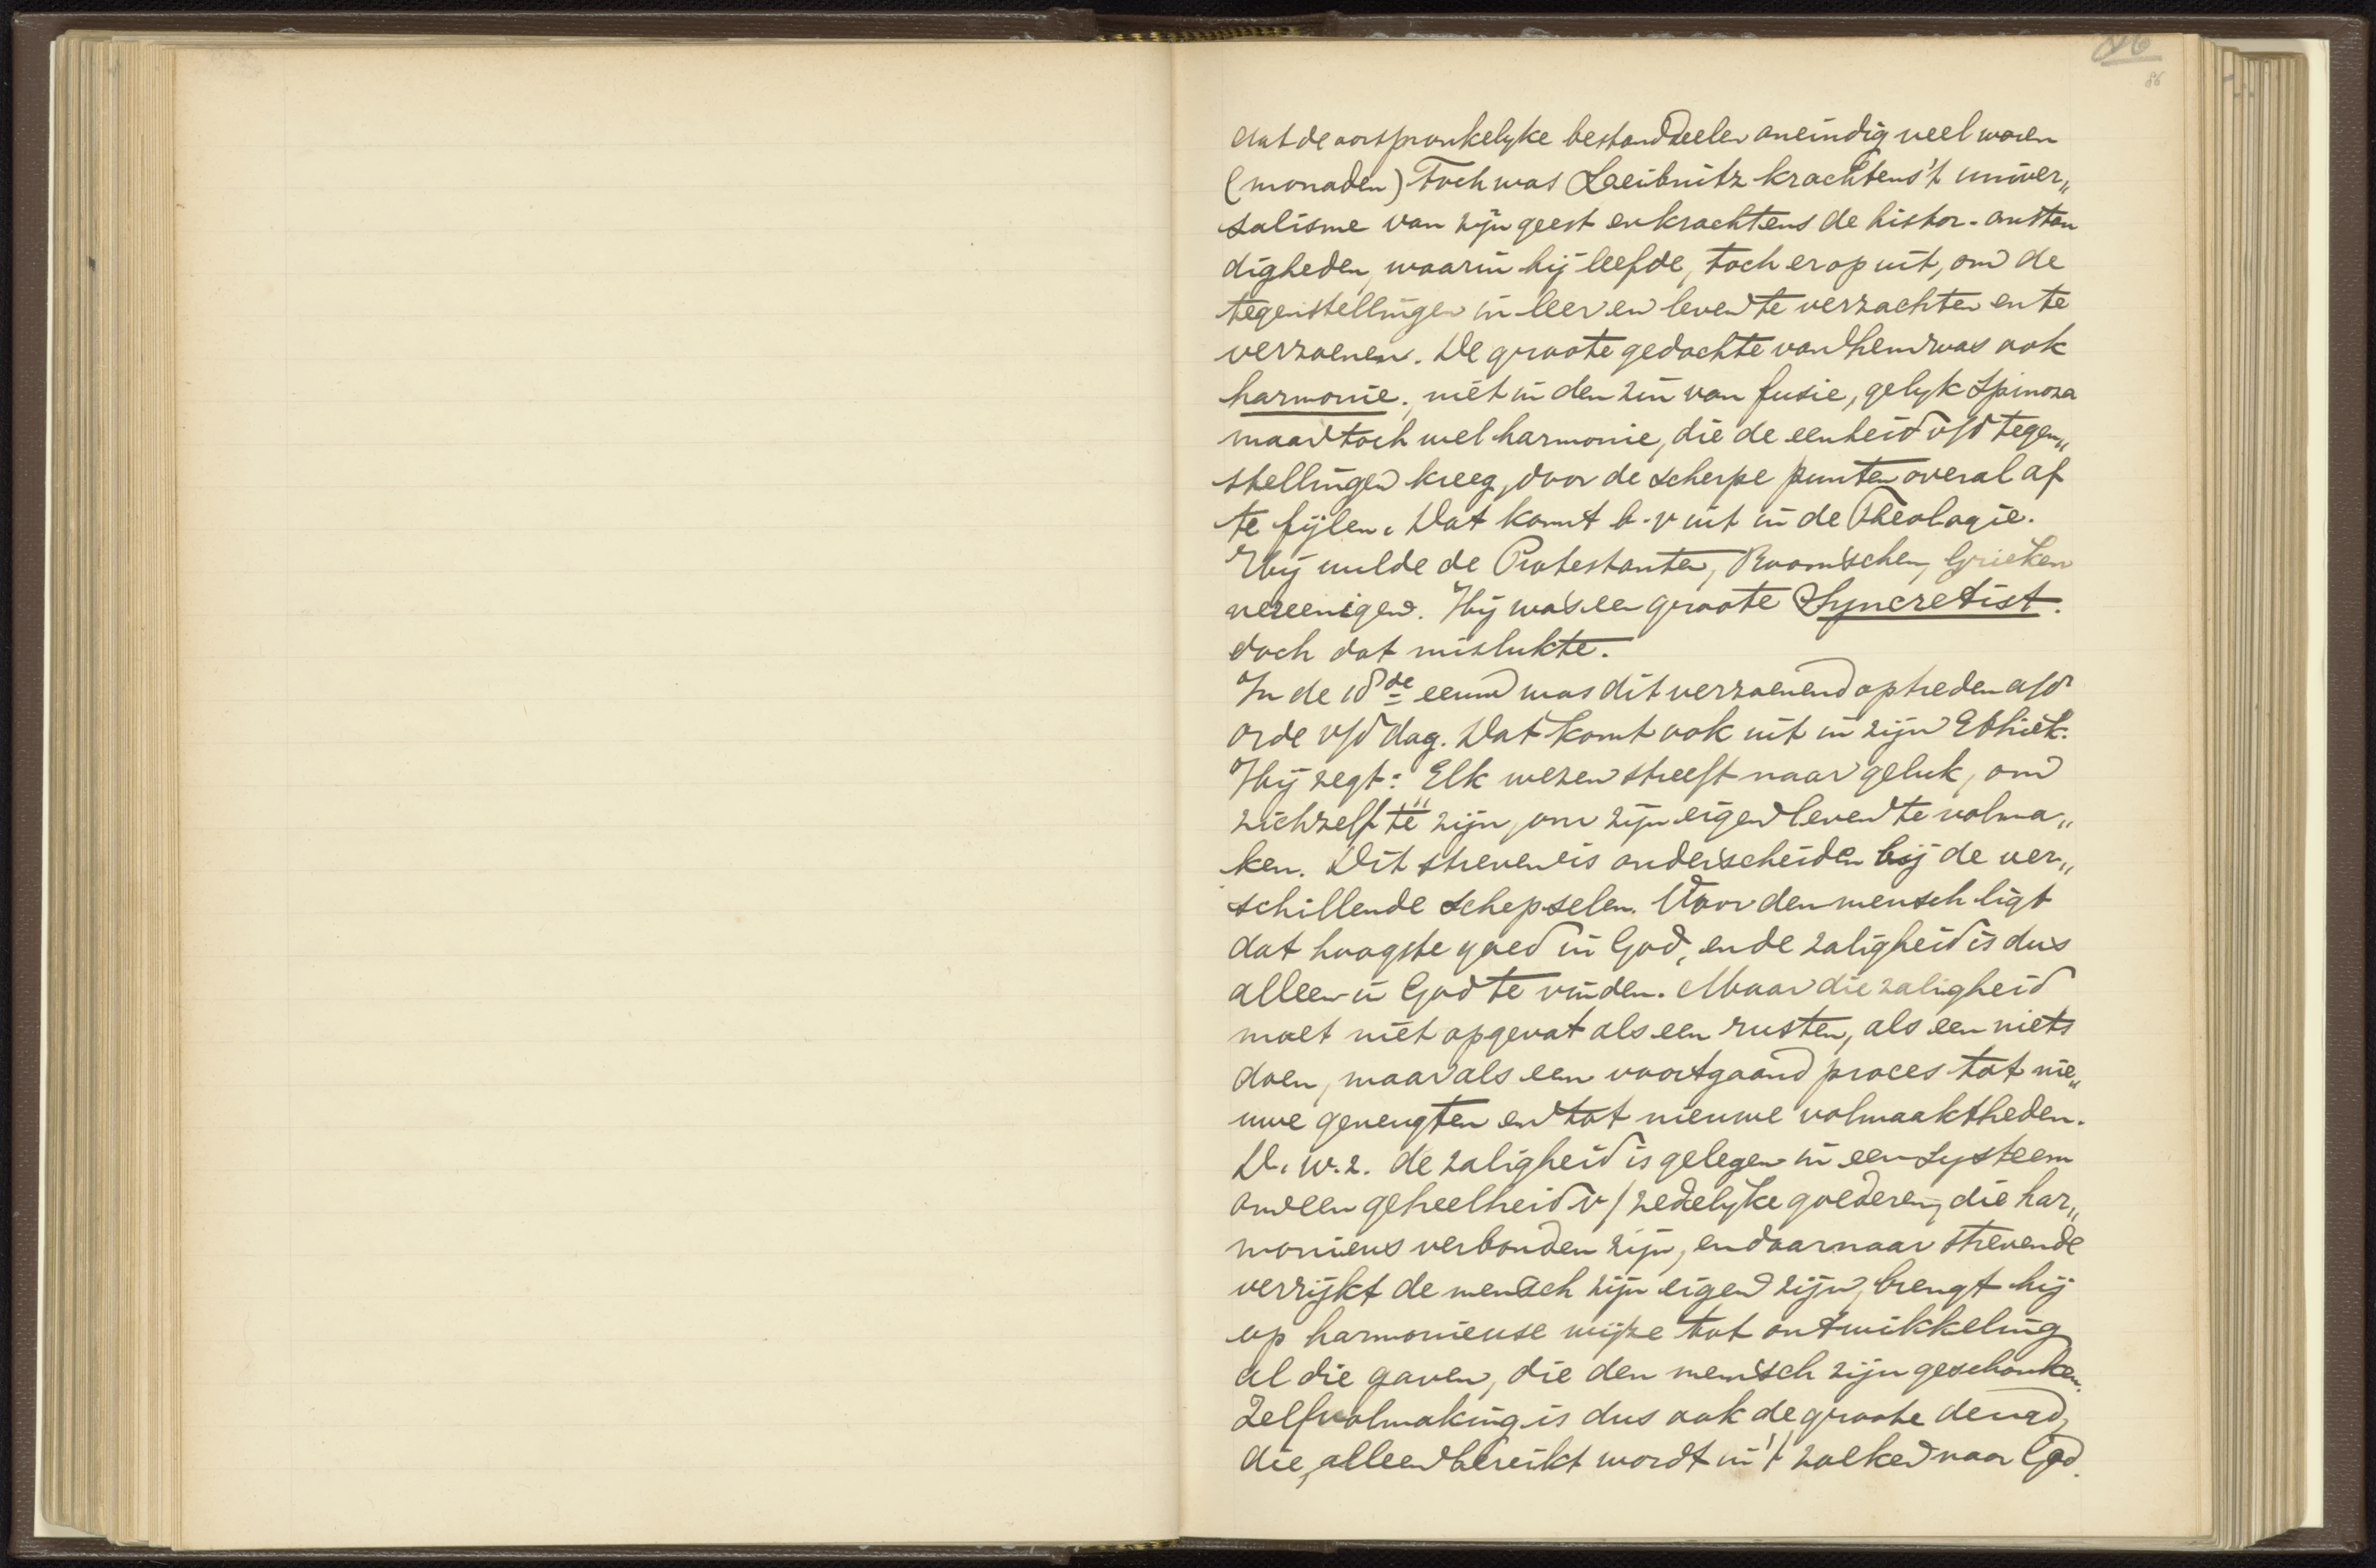 86
86
dat de oorspronkelyke bestanddeelen oneindig veel waren
(monaden) Toch was Leibnitz krachtens 't univer„
salisme van zijn geest en krachtens de histor. omstan
digheden, waarin hij leefde, toch erop uit, om de
tegenstellingen in leer en leven te verzachten en te
verzoenen. De groote gedachte van hem was ook
harmonie, niet in den zin van fusie, gelyk Spinoza
maar toch wel harmonie, die de eenheid v/d tegen„
stellingen kreeg, door de scherpe punten overal af
te fijlen. Dat komt b.v uit in de Theologie.
Hij wilde de Protestanten, Roomschen, Grieken
vereenigen. Hij was een groote Syncretist.
doch dat mislukte.
In de 18de eeuw was dit verzoenend optreden a/d
orde v/d dag. Dat komt ook uit in zijn Ethiek.
Hij zegt: Elk wezen streeft naar geluk, om
zichzelf te zijn, om zijn eigen leven te volma„
ken. Dit streven is onderscheiden bij de ver„
schillende schepselen. Voor den mensch ligt
dat hoogste goed in God, en de zaligheid is dus
alleen in God te vinden. Maar die zaligheid
moet niet opgevat als een rusten, als een niets
doen, maar als een voortgaand proces tot nie„
uwe geneugten en tot nieuwe volmaaktheden.
D.w.z. de zaligheid is gelegen in een systeem
om een geheelheid v/ zedelyke goederen, die har„
monieus verbonden zijn, en daarnaar strevende
verrijkt de mensch zijn eigen zijn, brengt hij
op harmonieuse wijze tot ontwikkeling
al die gaven, die den mensch zijn geschonken.
Zelfvolmaking is dus ook de groote deugd,
die, alleen bereikt wordt in 't zoeken naar God.